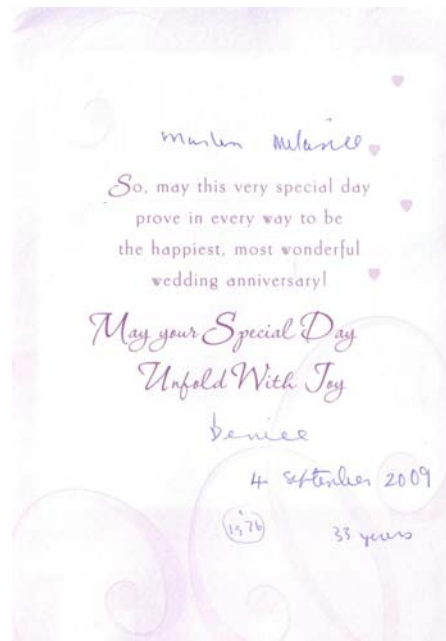 So, may this very special day
prove in every way to be
the happiest, most wonderful
wedding anniversary!
May your Special Day
Unfold With Joy
Denice
4 September 2009
1976
33 years